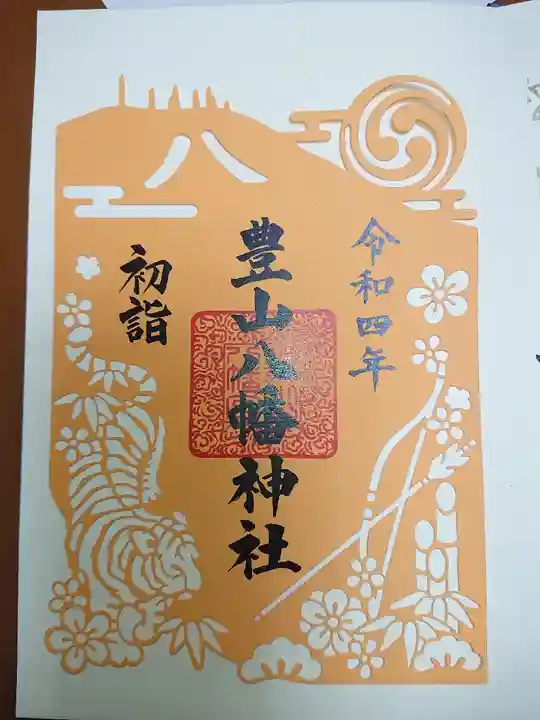 令和四年
豊山八幡神社
初詣
八